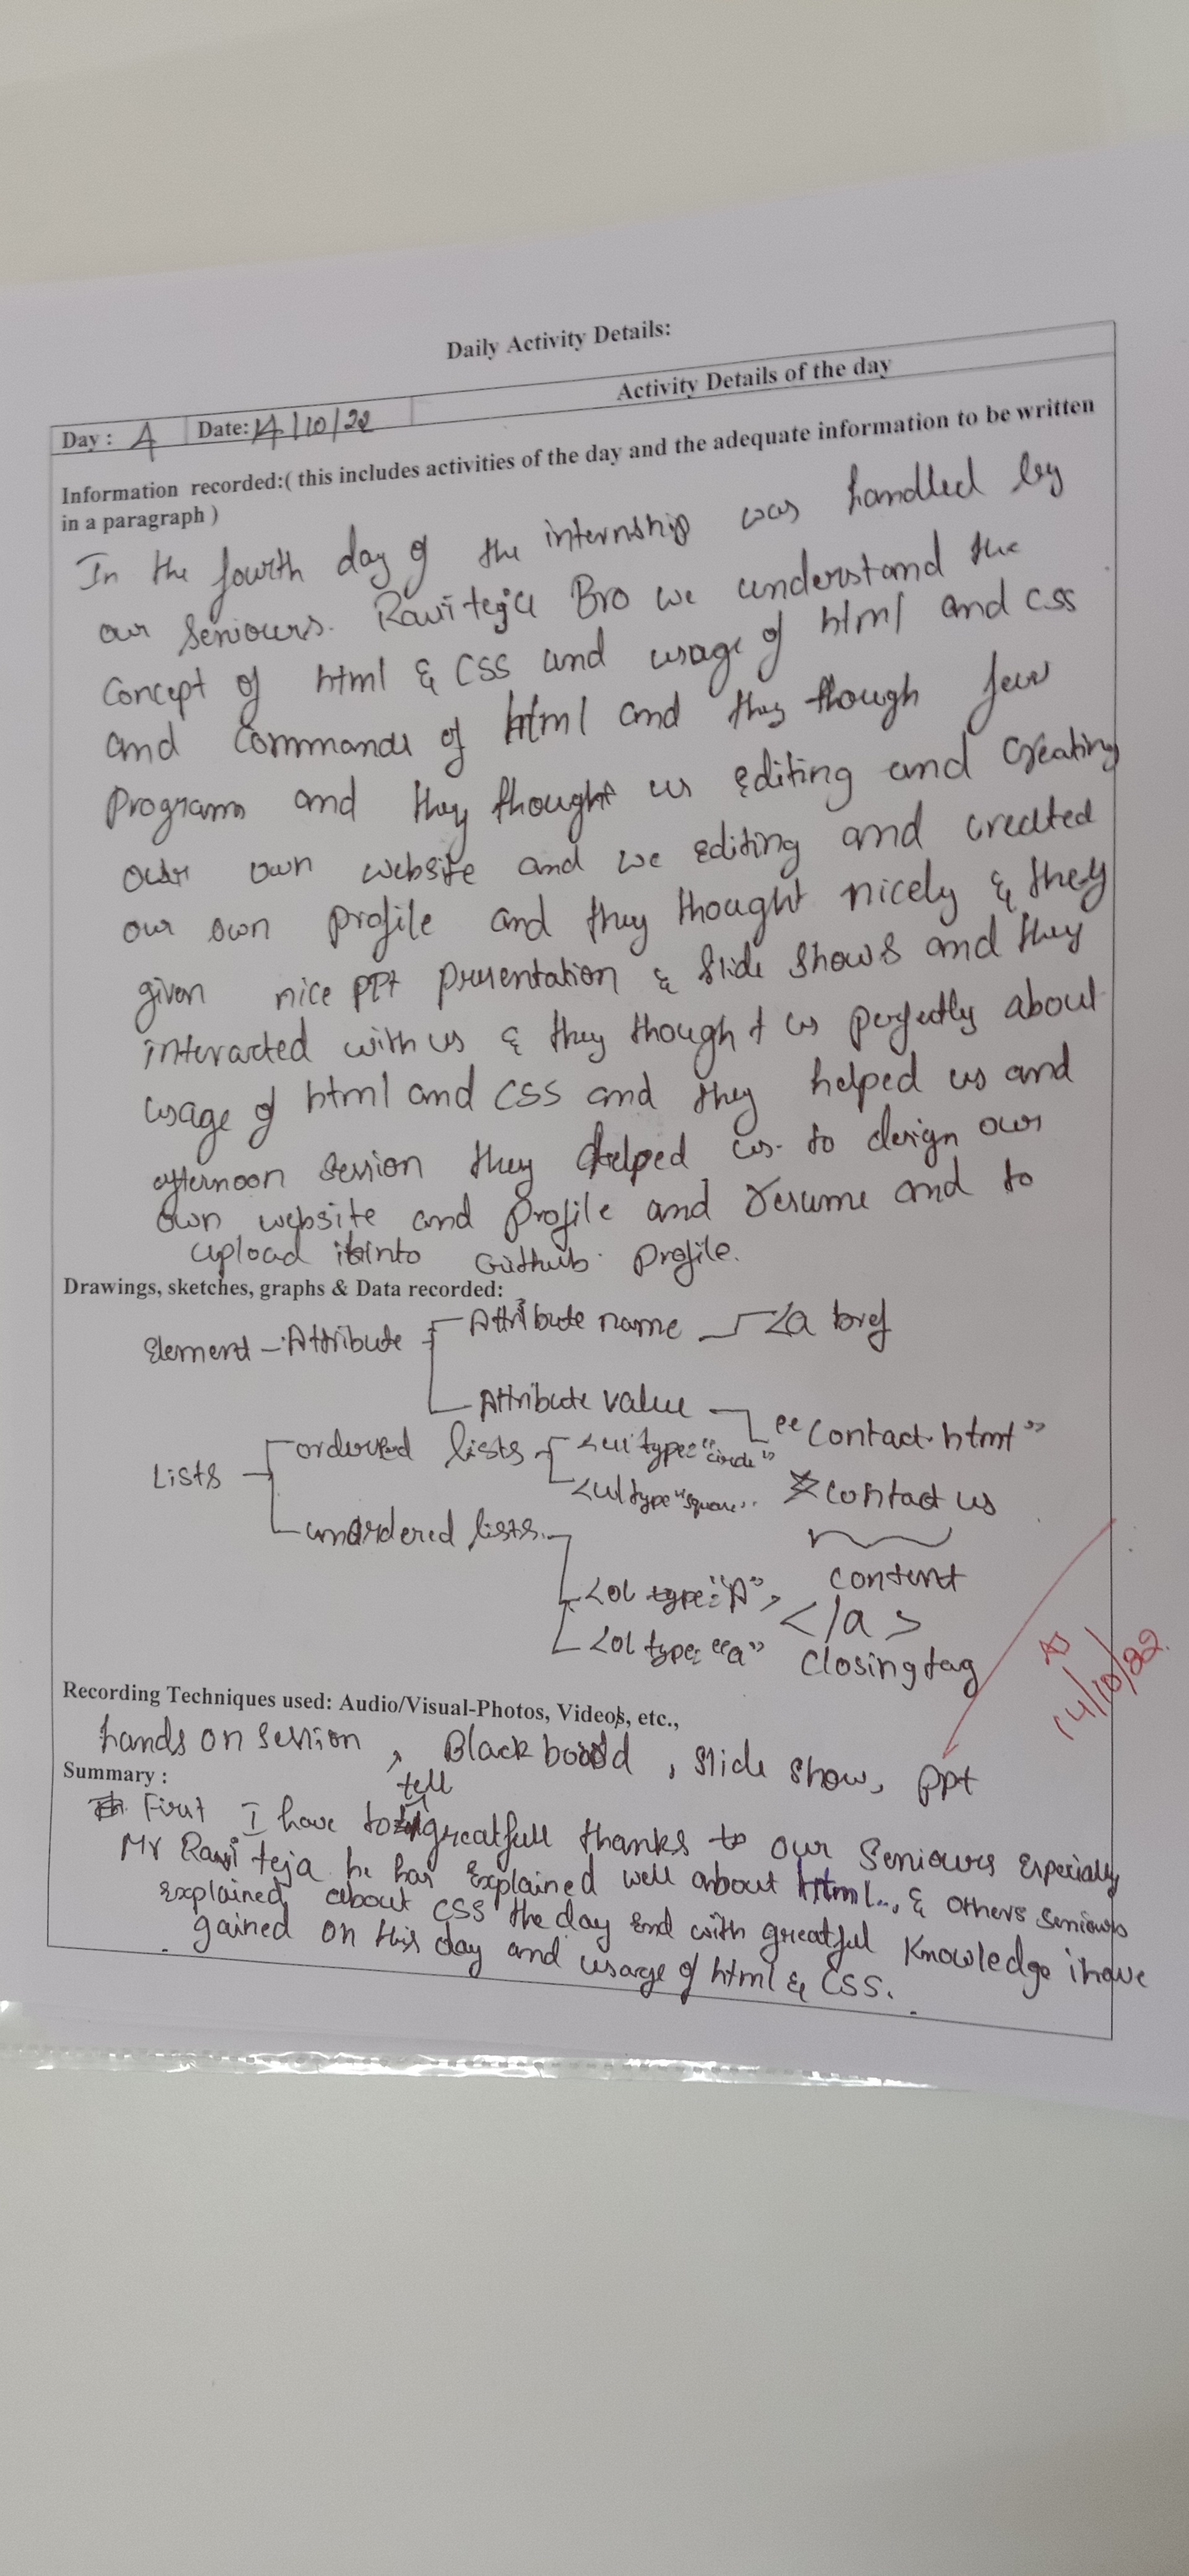 Daily Activity Details:
Day : 4 Date: 14/10/22 Activity Details of the day
Information recorded:( this includes activities of the day and the adequate information to be written
in a paragraph )
In the fourth day of the internship was handled by
our seniours. Raviteja Bro we understand the
concept of html & CSS and usage of html and css
and commands of html and they though few
programs and they thought us editing and creating
our own website and we editing and created
our own profile and they thought nicely & they
given nice PPt presentation & slide shows and they
interacted with us & they thought us perfectly about
usage of html and CSS and they helped us and
afternoon session they helped us to design our
own website and profile and resume and to
upload it into Github profile.
Drawings, sketches, graphs & Data recorded:
Element - Attribute Attribute name <a href
Attribute value "contact.html"
Lists ordered lists <ul type="circle"
<ul type "square" contact us
unordered lists.
content
<ol type="A"> </a>
<ol type: "a" closing tag
14/10/22
Recording Techniques used: Audio/Visual-Photos, Videos, etc.,
hands on session, Black board, slide show, ppt
Summary :
First I have to tell greatfull thanks to our seniours especially
Mr Ravi teja he has explained well about html.., & others seniours
explained about CSS the day end with greatful knowledge i have
gained on this day and usage of html & CSS.